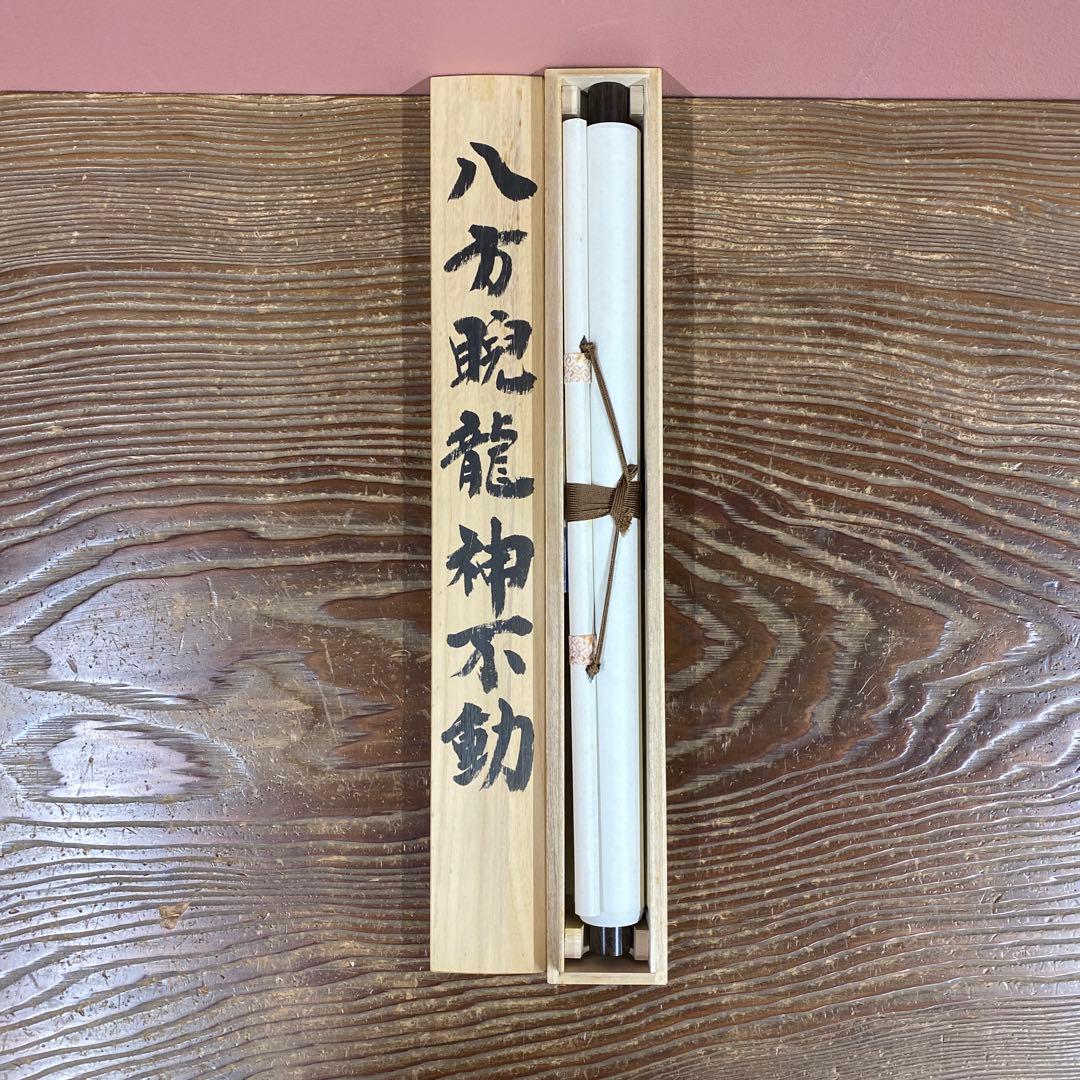 八方睨龍神不動